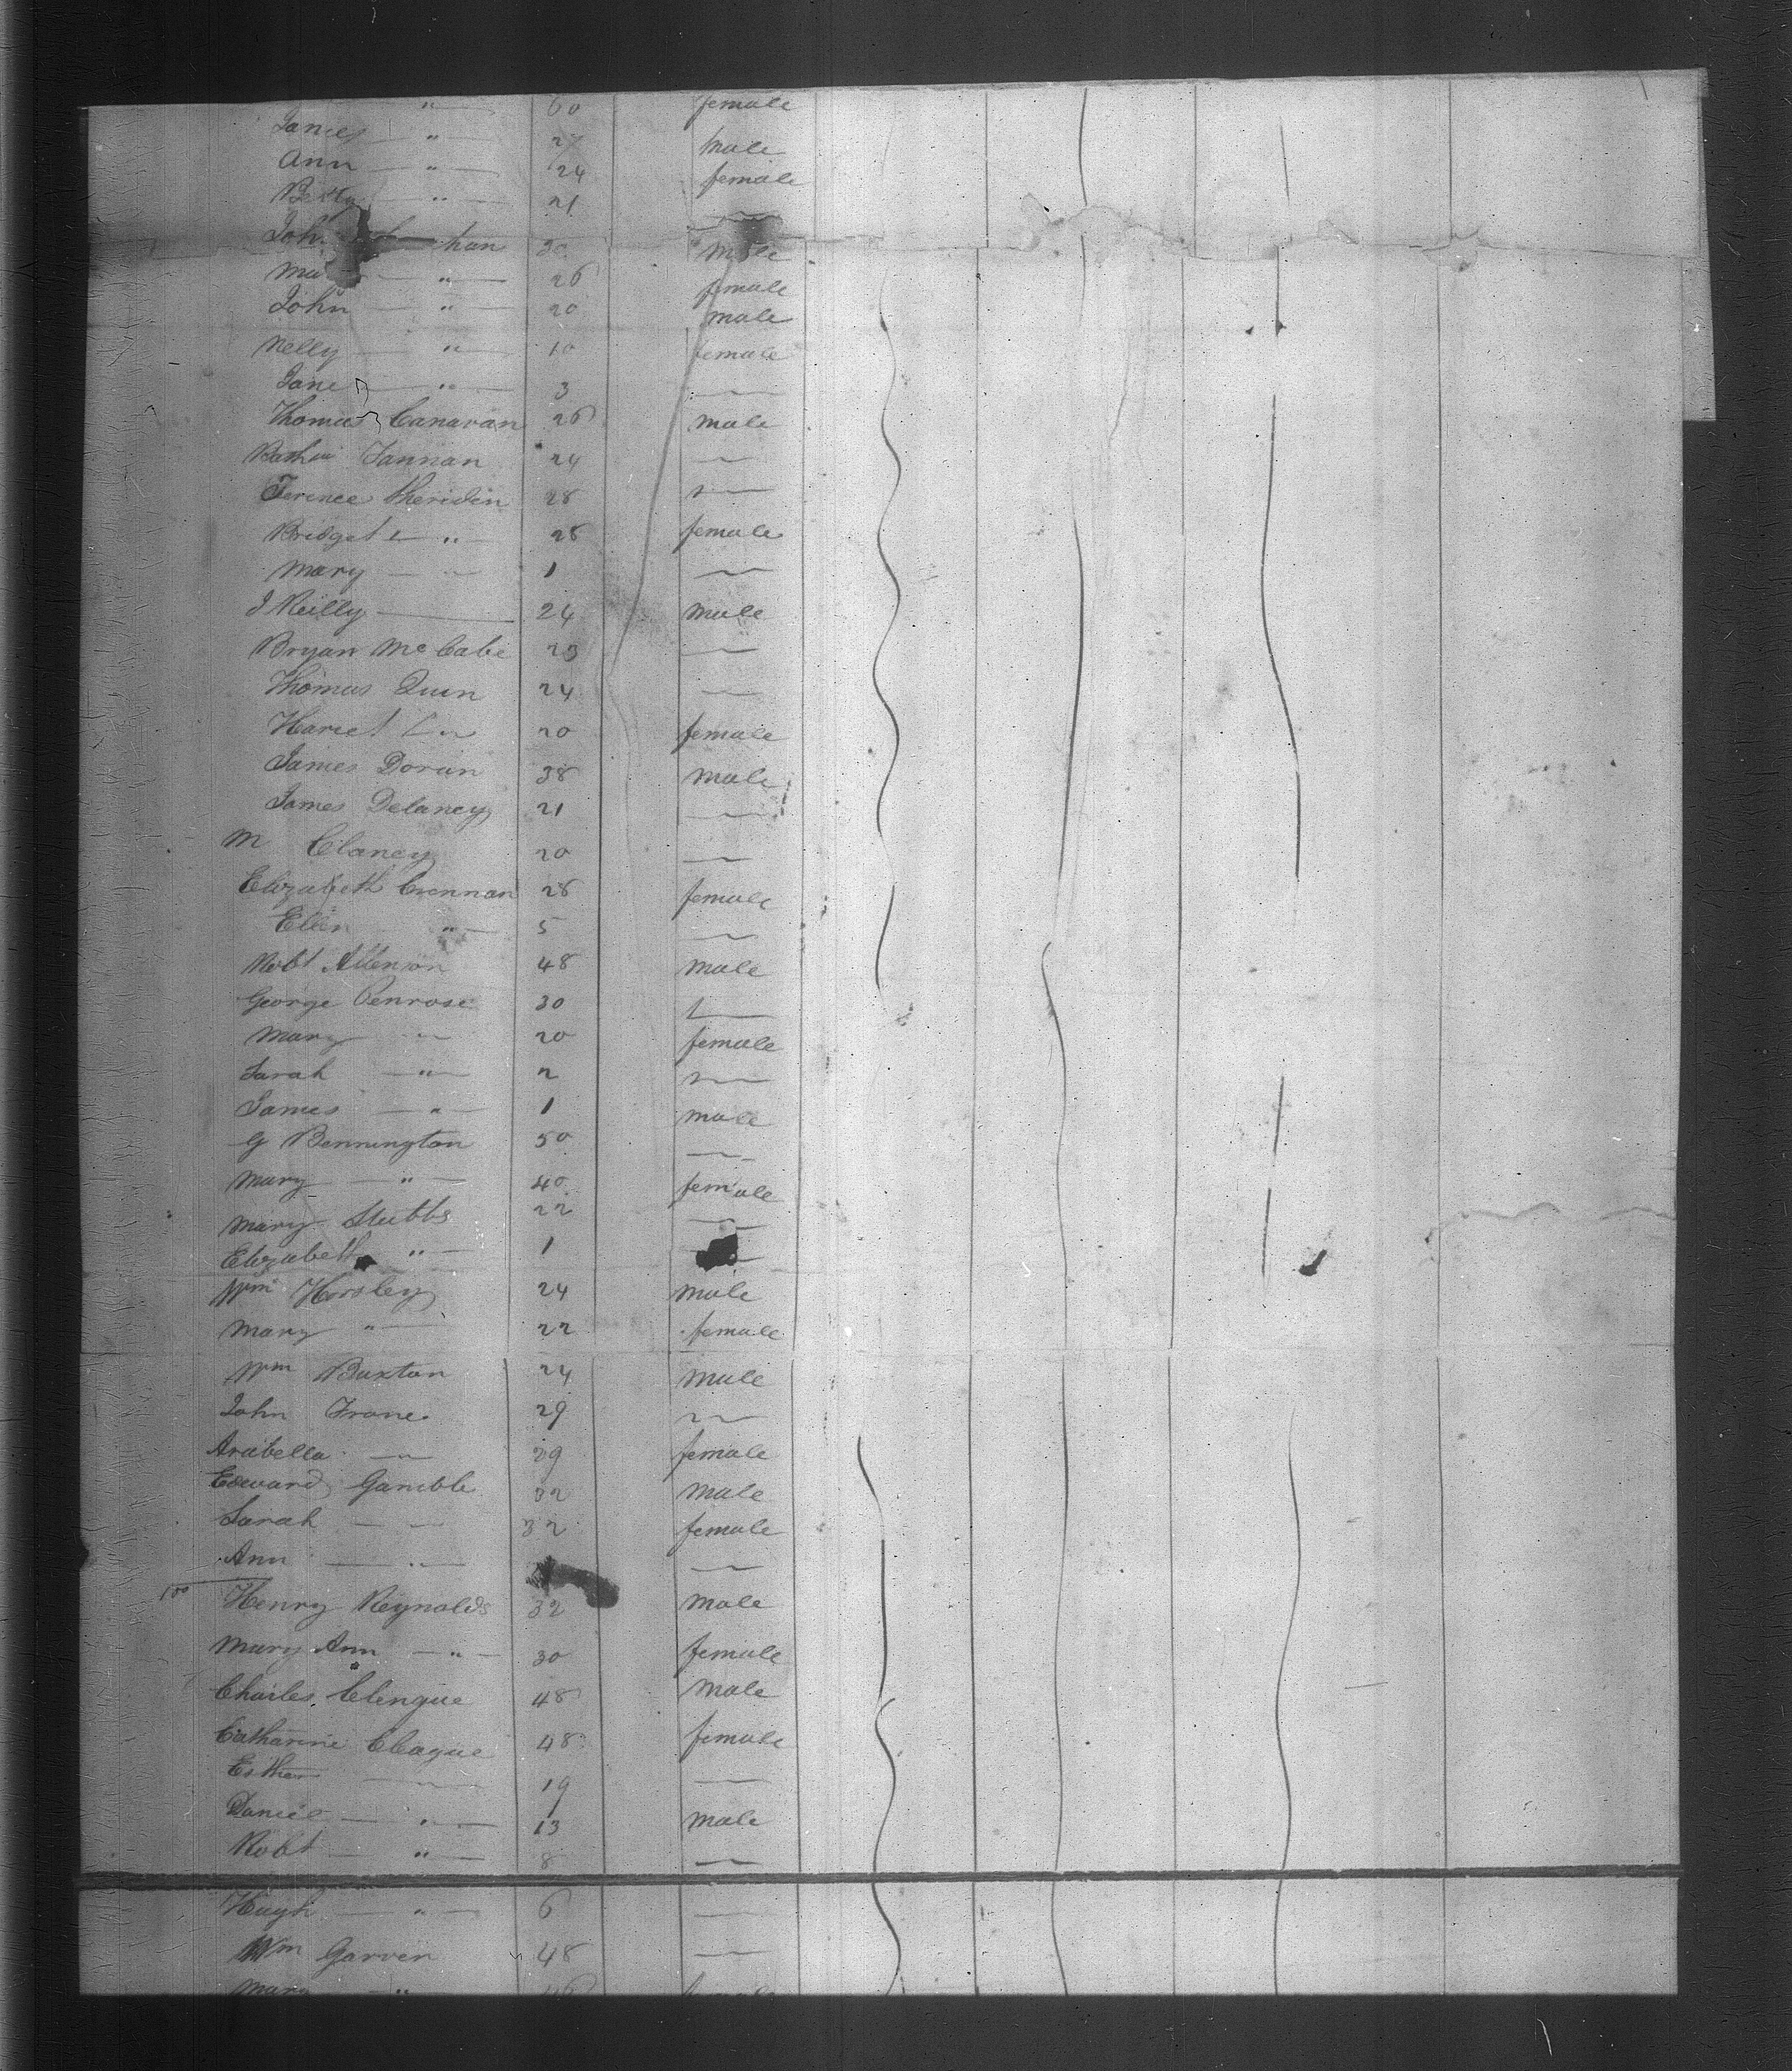 " 60 female
James " 27 male
Ann " 24 female
Betty " 21
John han 30 male
" 26 female
John " 20 male
Nelly " 10 female
Jane " 3
Thomas Canavan 26 male
Fannan 24
Terence Sheridin 28
Bridget " 28 female
Mary " 1
J Reilly 24 male
Bryan McCabe 23
Thomas Quin 24
Hariet " 20 female
James Doran 38 male
James Delaney 21
M Clancy 20
Elizabeth Crennan 28 female
Ellen " 5
Robt 48 male
George Penrose 30
Mary " 20 female
Sarah " 2
James " 1 male
G Bennington 50
Mary " 40 female
Mary Stubbs 22
Elizabeth " 1
Wm Horsley 24 male
Mary " 22 female
Wm Buxton 24 male
John Frane 29
Arabella " 29 female
Edward Gamble 32 male
Sarah 32 female
Ann "
100 Henry Reynolds 32 male
Mary Ann " 30 female
Charles Clengue 48 male
Catharine Clague 48 female
Esther " 19
Daniel " 13 male
Robt " 8
Hugh " 6
Wm Garven 48
Mary " 46 female